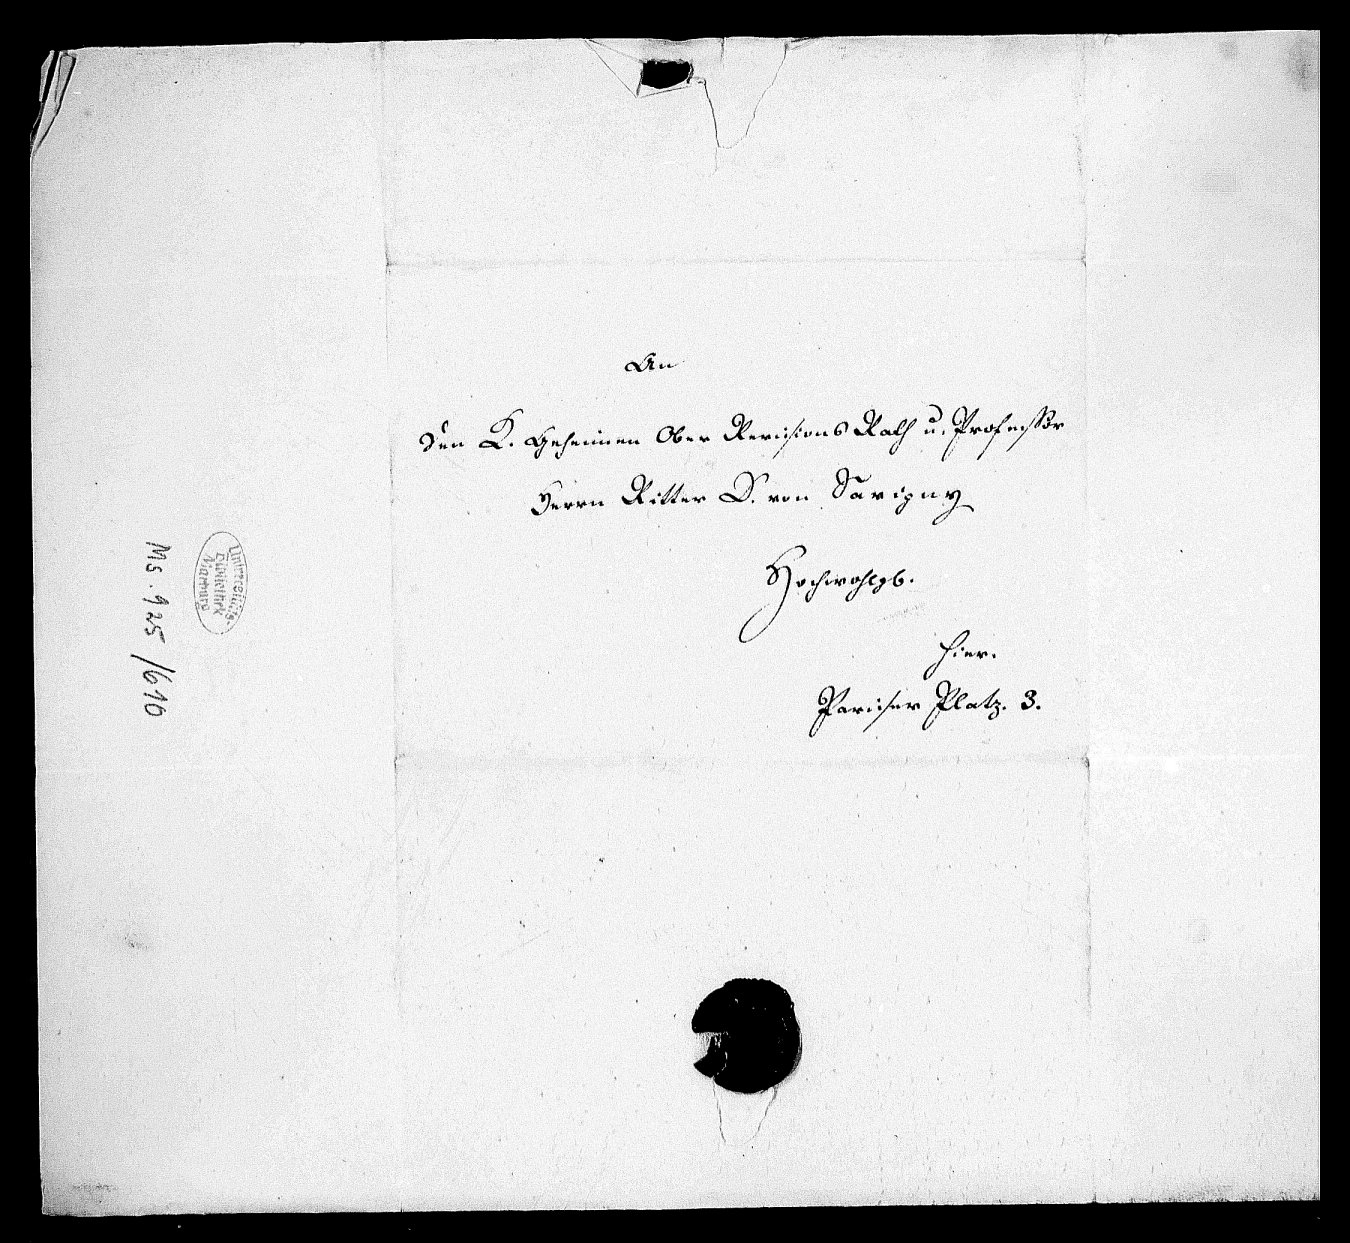 An
den K. Geheimen Ober Revisions Rath u. Professor
Herrn Ritter D. von Savigny
Hochwohlgb.
hier.
Pariser Platz. 3.
Universitäts-
Bibliothek
Marburg
Ms. 925/610